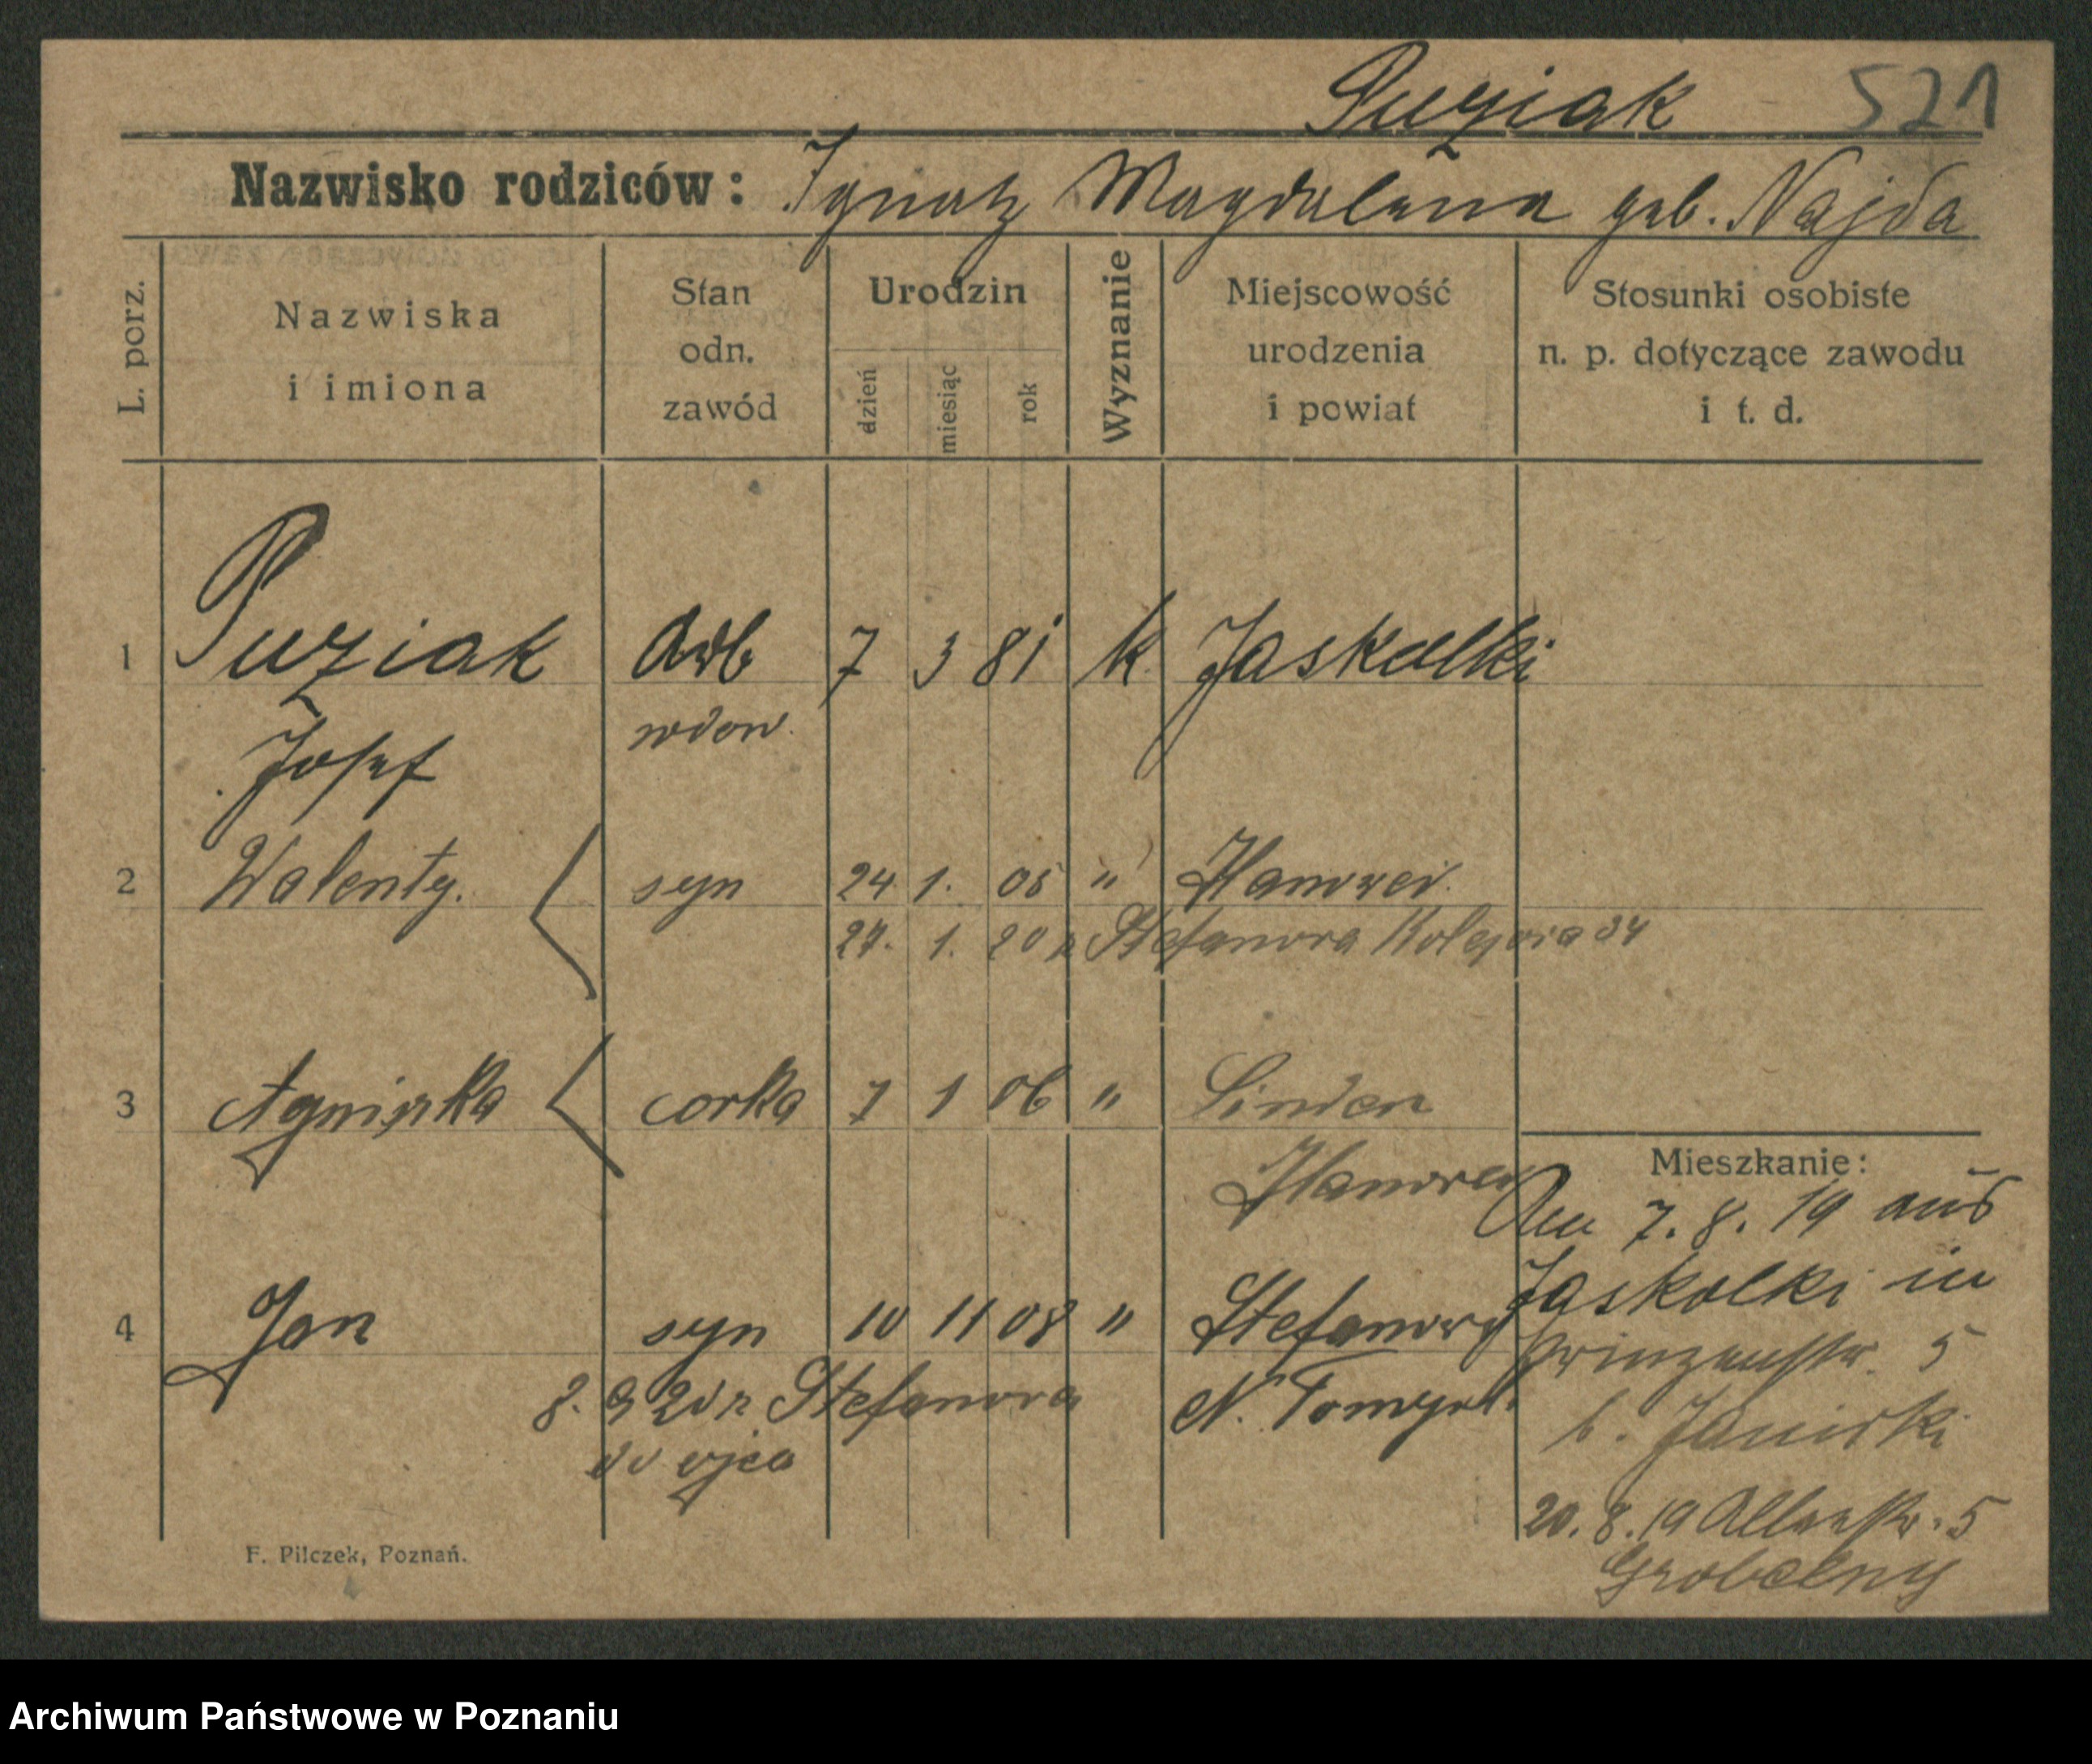 Puziak 521
Nazwisko rodziców: Ignatz Magdalena geb. Najda
L. porz.
Nazwiska
i imiona
Stan
odn.
zawód
Urodzin
dzień
miesiąc
rok
Wyznanie
Miejscowość
urodzenia
i powiat
Stosunki osobiste
n. p. dotyczące zawodu
i t. d.
1 Puziak Arb 7 3 81 k Jaskulki
Josef wdow.
2 Walenty. syn 24 1. 05 " Hanower.
27. 1. 20 z Stefanowa Kolejowa 34
3 Agnieszka corka 7 1 06 " Linden
Hanower
4 Jan syn 10 11 08 " Stefanowo
8. 9 20 z Stefanowa N. Tomysl.
do ojca
Mieszkanie:
7. 8. 19 aus
Jaskolki in
Prinzenstr. 5
b.
20. 8. 19 5
Grobelny
F. Pilczek, Poznań.
Archiwum Państwowe w Poznaniu